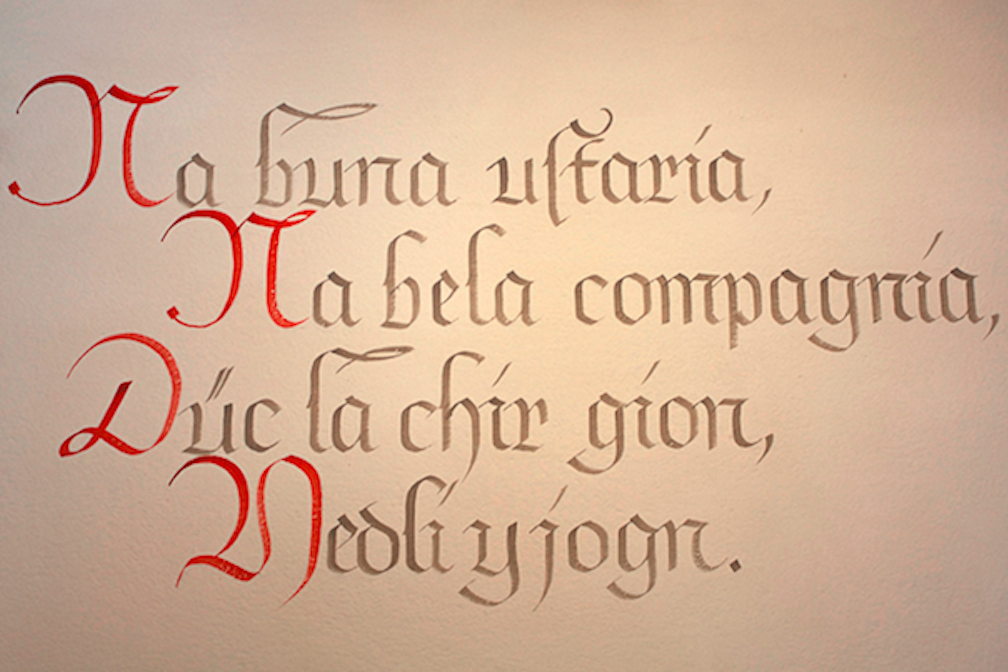 Na buna uſtaria,
Na bela compagnia,
Düc la chir gion,
Vedli y jogn.